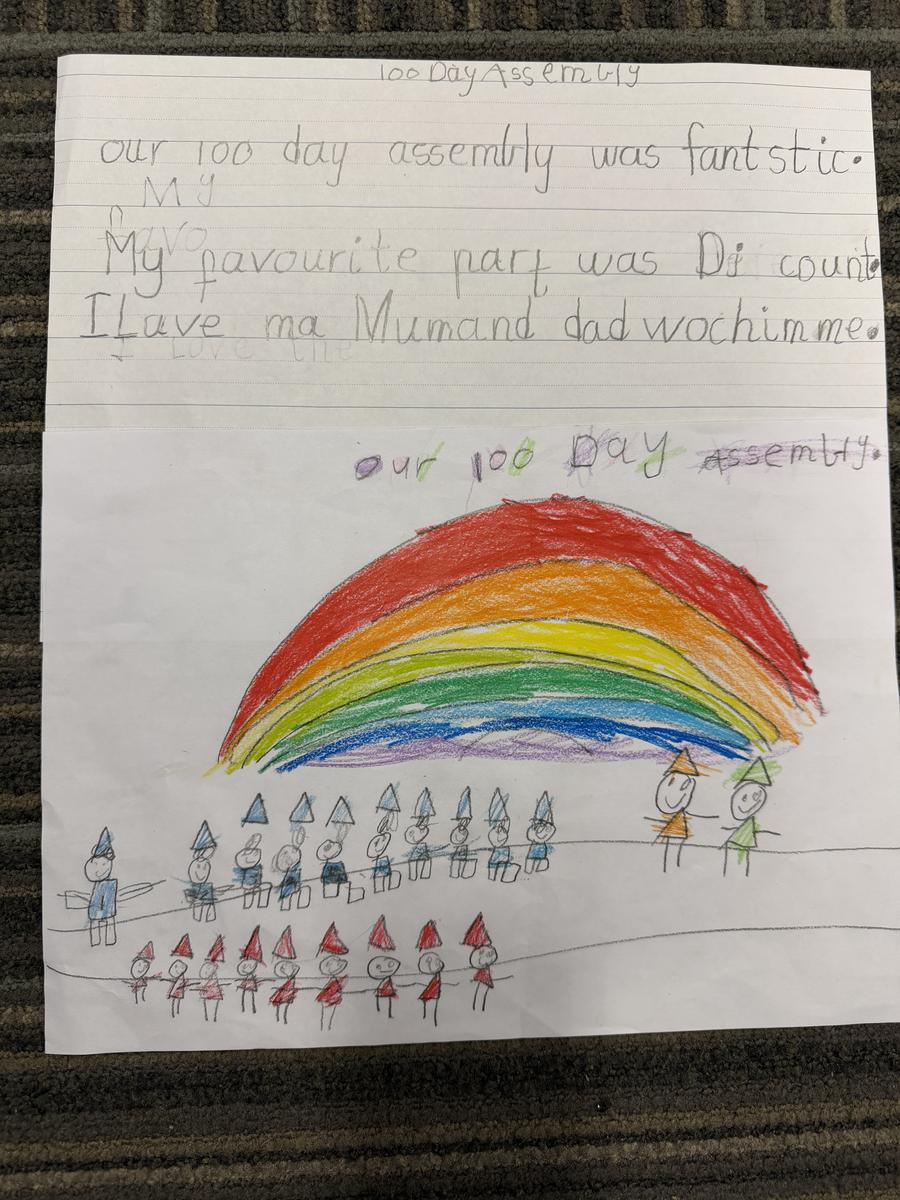 100 Day Assembly
our 100 day assembly was fantstic.
My
favo
My favourite part was Di count.
I Lave ma Mumand dad wochimme.
I Love the
our 100 Day assembly.